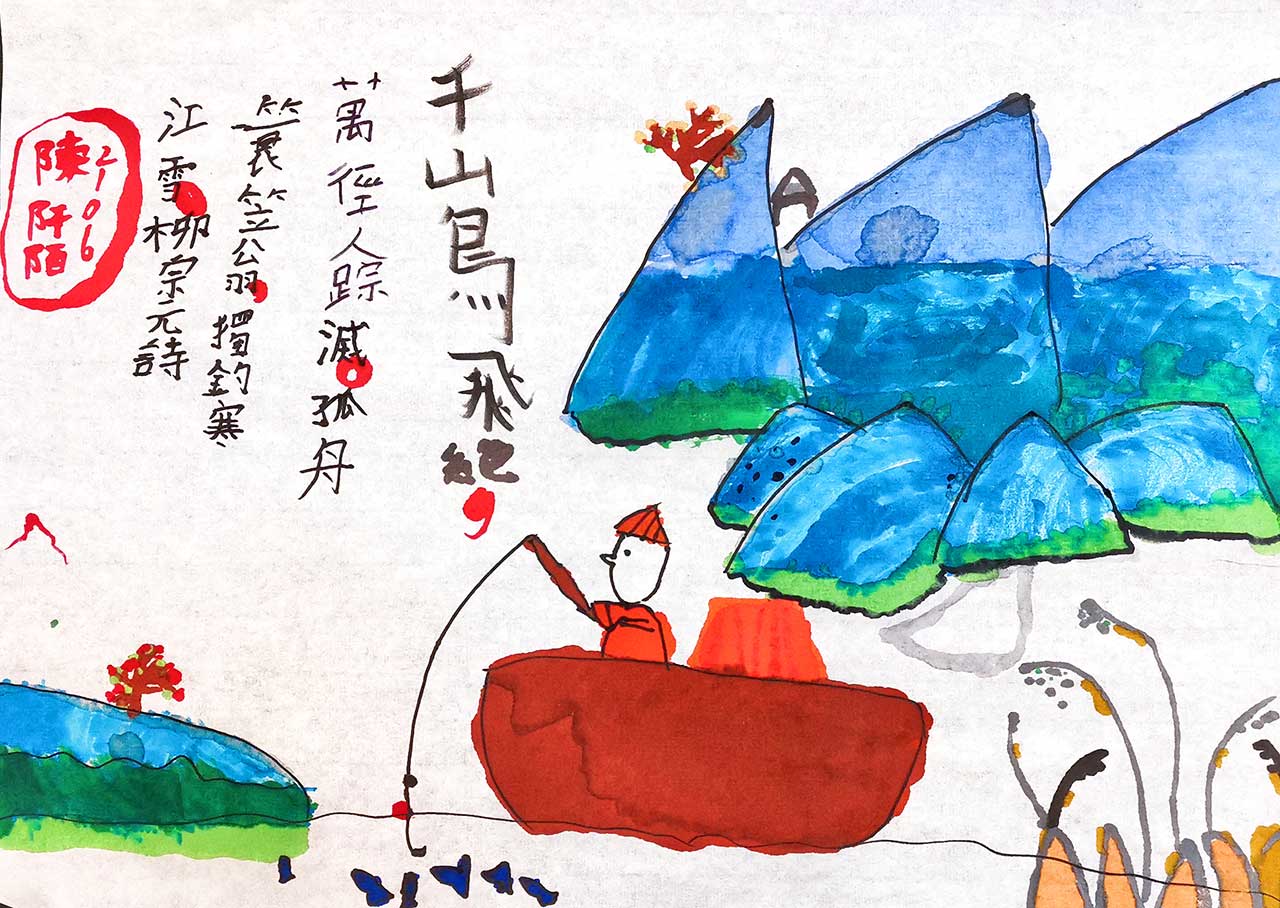 千山鳥飛絶
萬徑人踪滅孤舟
蓑笠翁獨釣寒
江雪柳宗元詩
2106
陳阡陌